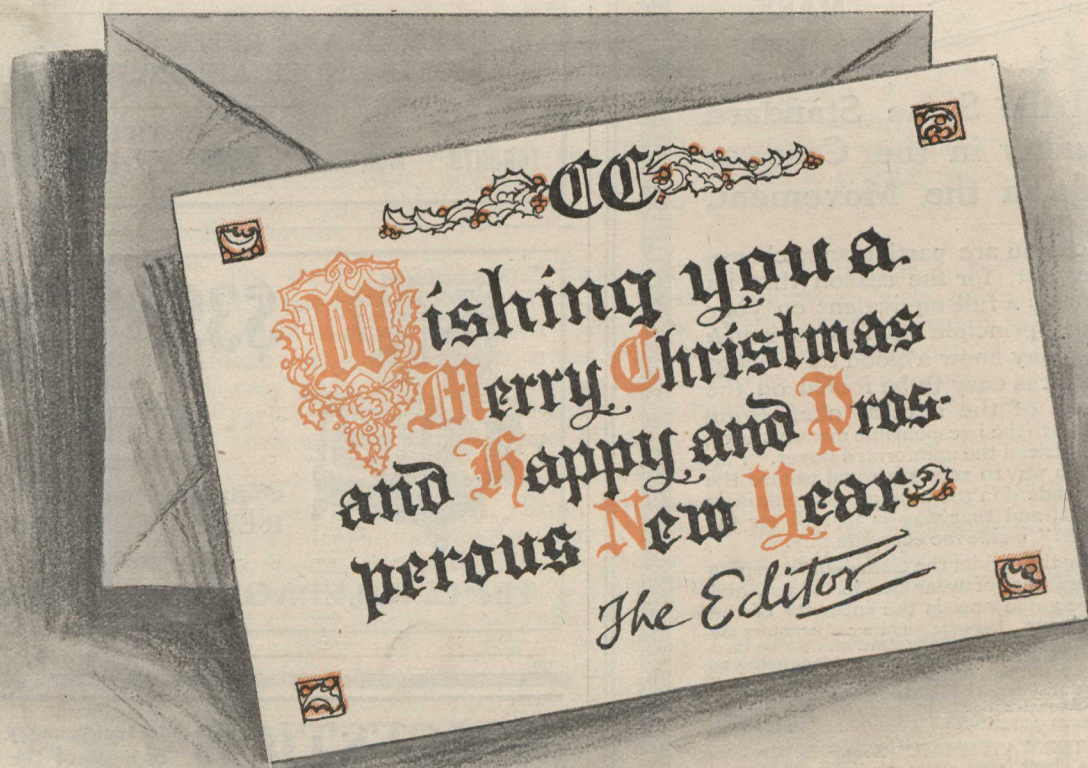 CC
Wishing you a
Merry Christmas
and Happy and Pros-
perous New Year
The Editor